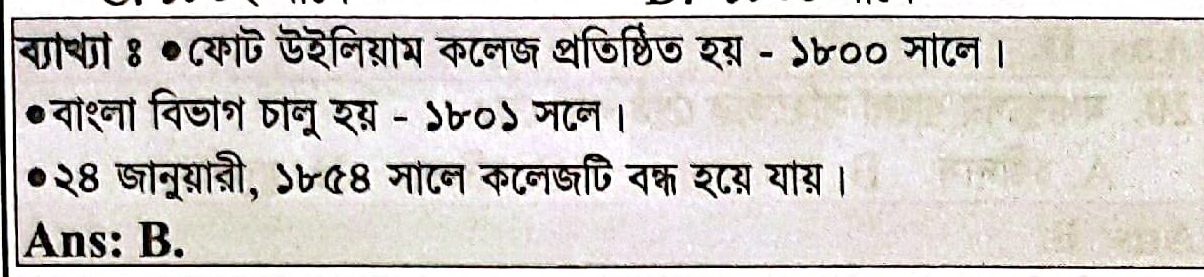 ব্যাখ্যা ঃ ●ফোর্ট উইলিয়াম কলেজ প্রতিষ্ঠিত হয় - ১৮০০ সালে।
●বাংলা বিভাগ চালু হয় - ১৮০১ সলে।
●২৪ জানুয়ারী, ১৮৫৪ সালে কলেজটি বন্ধ হয়ে যায়।
Ans: B.